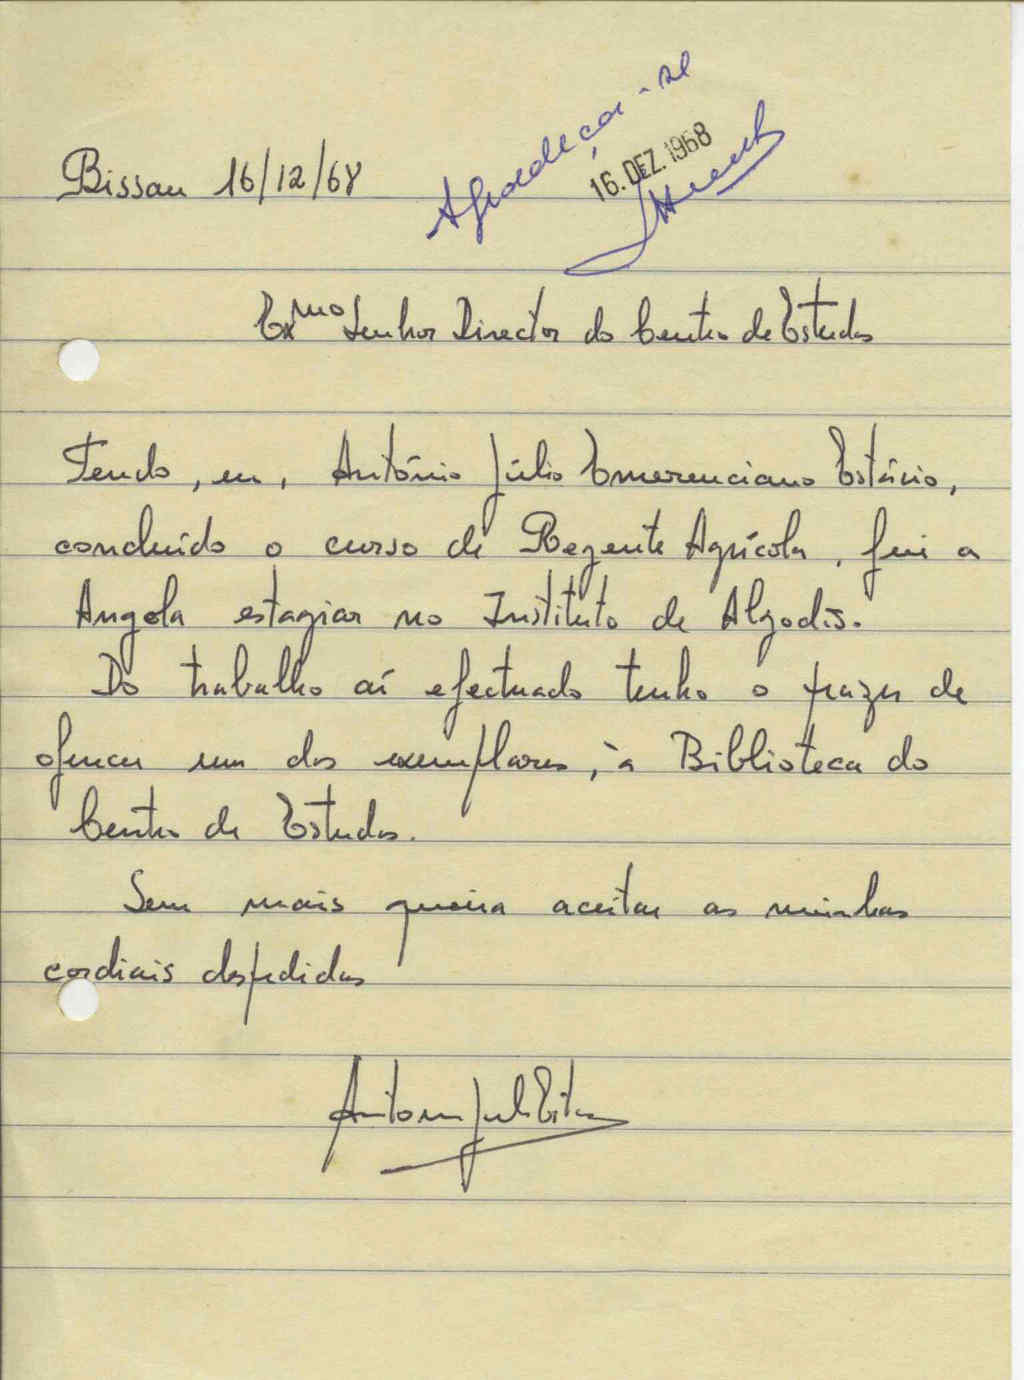 Agradeça-se
16. DEZ. 1968
Bissau 16/12/68
Exmo Senhor Director do Centro de Estudos
Tendo, eu, António Júlio Emerenciano Estácio,
concluído o curso de Regente Agrícola, fui a
Angola estagiar no Instituto de Algodão.
Do trabalho aí efectuado tenho o prazer de
oferecer um dos exemplares, à Biblioteca do
Centro de Estudos.
Sem mais queira aceitar as minhas
cordiais despedidas